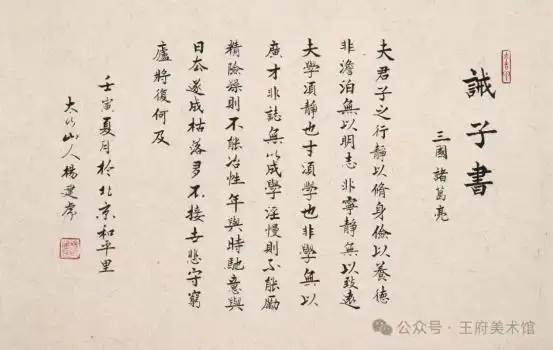 誡子書
三國 諸葛亮
夫君子之行靜以脩身儉以養德
非澹泊無以明志非寧靜無以致遠
夫學須靜也才須學也非學無以
廣才非誌無以成學淫慢則不能勵
精險躁則不能冶性年與時馳意與
日去遂成枯落多不接世悲守窮
廬將復何及
壬寅夏月於北京和平里
太行山人楊建
公众号 · 王府美术馆